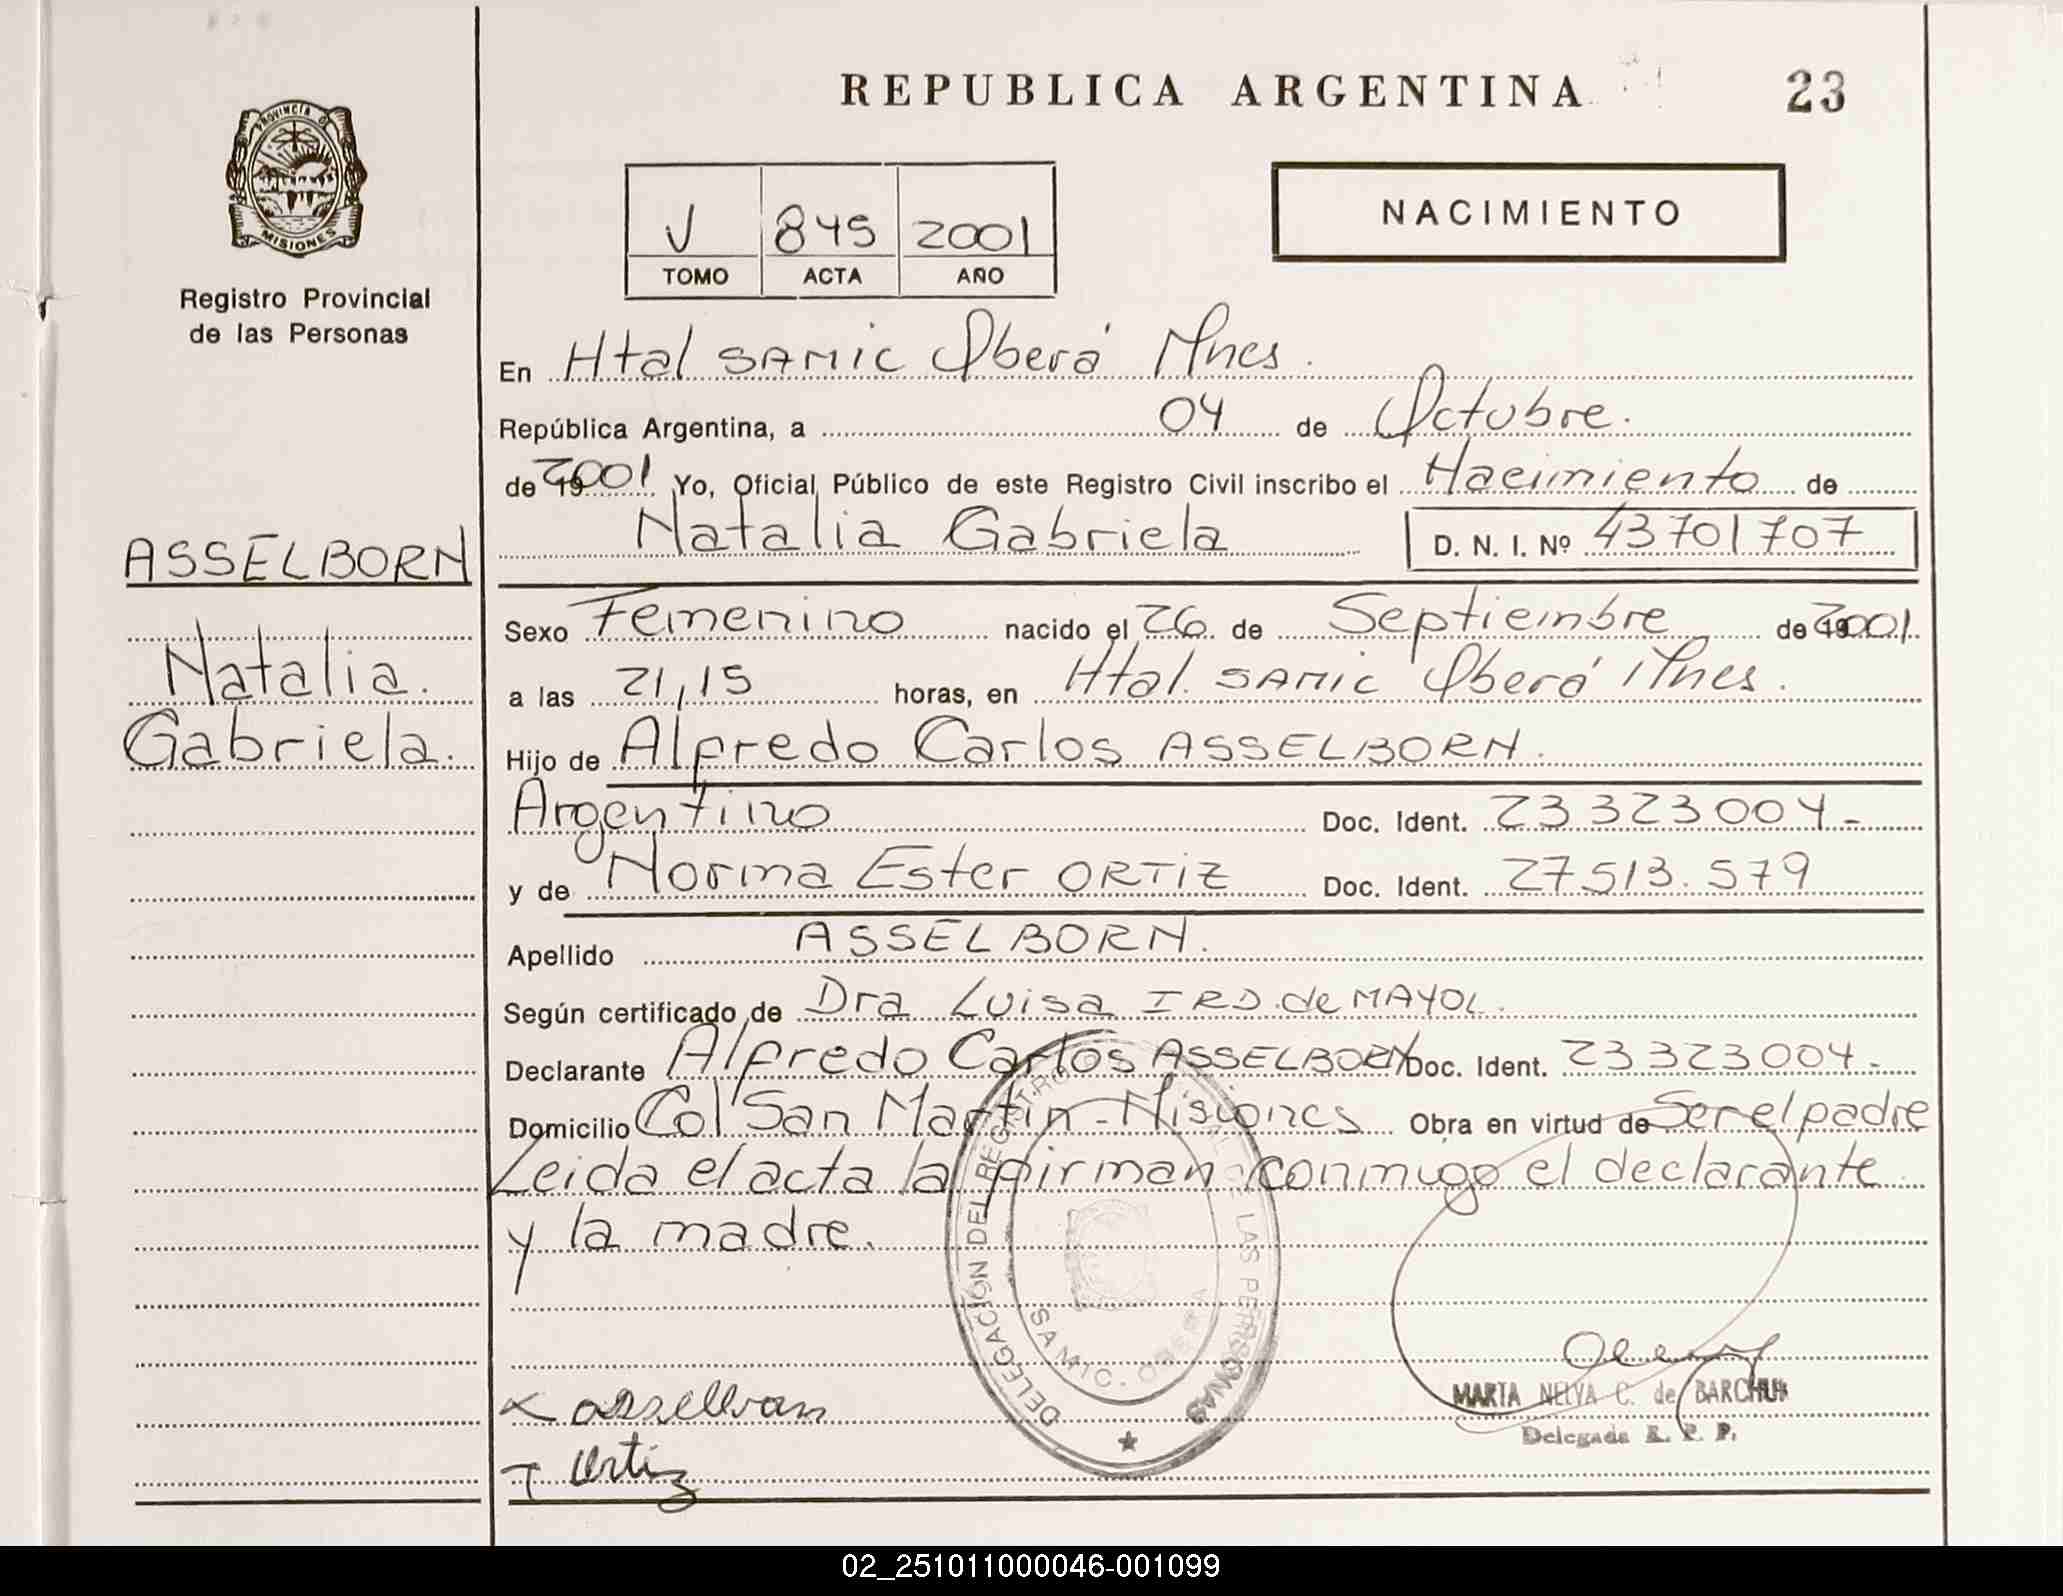 REPUBLICA ARGENTINA
23
PROVINCIA D
MISIONES
Registro Provincial
de las Personas
V 845 2001
TOMO ACTA AÑO
NACIMIENTO
En Htal SAMIC Oberá Mnes.
República Argentina, a 04 de Octubre.
de 2001 Yo, Oficial Público de este Registro Civil inscribo el Nacimiento de
Natalia Gabriela D. N. I. Nº 43701707
ASSELBORN
Natalia.
Gabriela.
Sexo Femenino nacido el 26 de Septiembre de 2001.
a las 21,15 horas, en Htal. SAMIC Oberá Mnes.
Hijo de Alfredo Carlos ASSELBORN.
Argentino Doc. Ident. 23 323 004-
y de Norma Ester ORTIZ Doc. Ident. 27513.579
Apellido ASSELBORN.
Según certificado de Dra Luisa I R D. de MAYOL.
Declarante Alfredo Carlos ASSELBORN Doc. Ident. 23 323 004-
Domicilio Col San Martin - Misiones Obra en virtud de Ser el padre
Leida el acta la firman conmigo el declarante
y la madre.
DELEGACIÓN DEL REGISTRO DE LAS PERSONAS
SAMIC. OBERA
MARTA NELVA C. de BARCHUK
Delegada R. P. P.
Ortiz
02_251011000046-001099